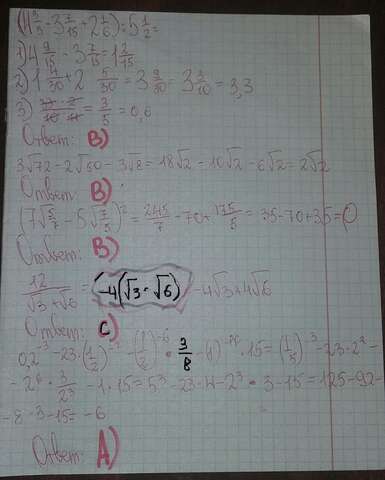 (4 3/5 - 3 7/15 + 2 1/6) : 5 1/2 =
1) 4 9/15 - 3 7/15 = 1 2/15
2) 1 4/30 + 2 5/30 = 3 9/30 = 3 3/10 = 3,3
3) = 3/5 = 0,6
Ответ: В)
3√72 - 2√50 - 3√8 = 18√2 - 10√2 - 6√2 = 2√2
Ответ: В)
(7√5/7 - 5√7/5)² = 245/7 - 70 + 175/5 = 35 - 70 + 35 = 0
Ответ: В)
12/√3+√6 = -4(√3 - √6) -4√3+4√6
Ответ: С)
0,2⁻³ - 23·(1/2)⁻² · 3/8 · 15 = (1/5)⁻³ - 23·2² -
- 2⁶ · 3/2³ - 1·15 = 5³ - 23·4 - 2³ · 3 - 15 = 125 - 92 -
- 8·3 - 15 = -6
Ответ: А)